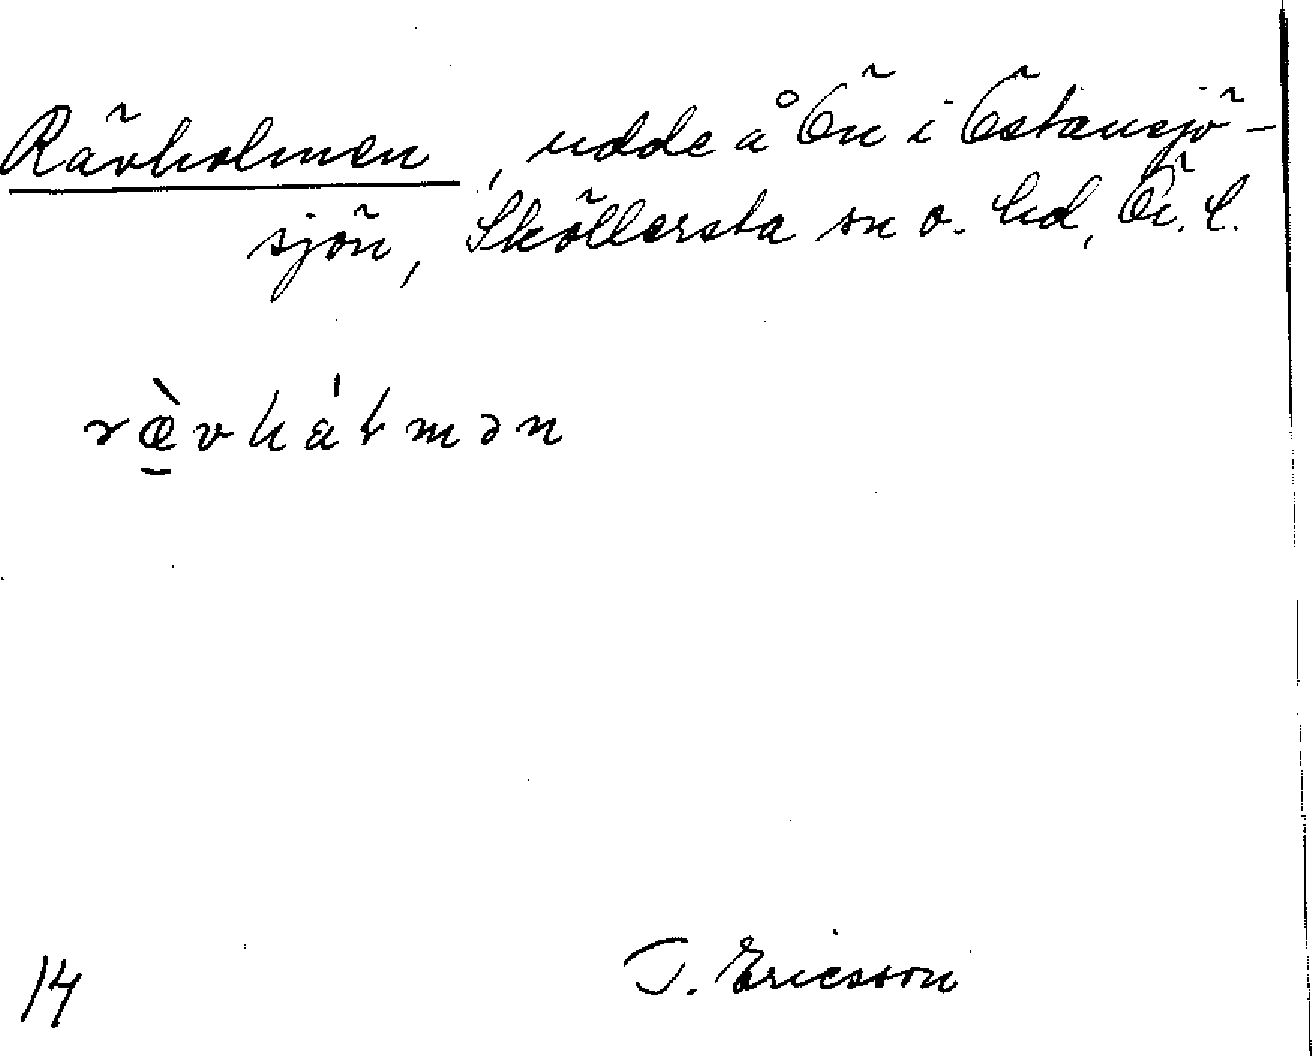 Rävholmen, udde å Ön i Östansjö-
sjön, Sköllersta sn o. hd, Ö.l.
ræ̠̀vhålmən
14
J. Ericsson